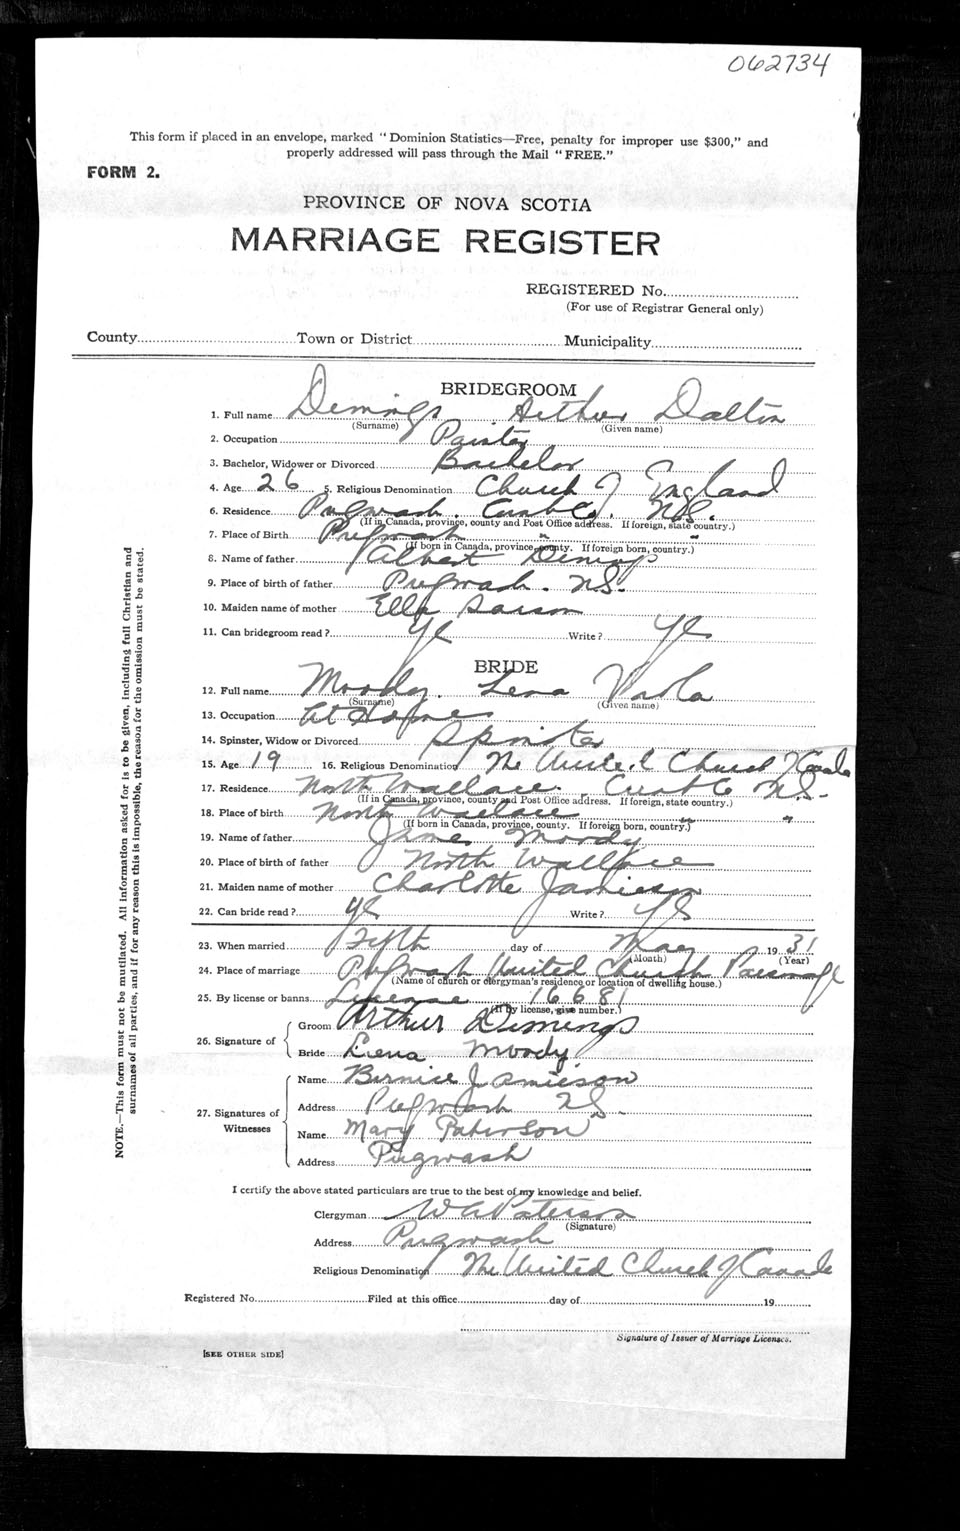 062734
This form if placed in an envelope, marked "Dominion Statistics—Free, penalty for improper use $300," and
properly addressed will pass through the Mail "FREE."
FORM 2.
PROVINCE OF NOVA SCOTIA
MARRIAGE REGISTER
REGISTERED No.
(For use of Registrar General only)
County Town or District Municipality
BRIDEGROOM
1. Full name Demings Arthur Dalton
(Surname) (Given name)
2. Occupation Painter
3. Bachelor, Widower or Divorced Bachelor
4. Age 26 5. Religious Denomination Church of England
6. Residence Pugwash. Cumb Co. N.S.
(If in Canada, province, county and Post Office address. If foreign, state country.)
7. Place of Birth Pugwash " "
(If born in Canada, province, county. If foreign born, country.)
8. Name of father Albert Demings
9. Place of birth of father Pugwash. N.S.
10. Maiden name of mother Ella
11. Can bridegroom read? Yes Write? Yes
BRIDE
12. Full name Moody. Lena Viola
(Surname) (Given name)
13. Occupation At Home
14. Spinster, Widow or Divorced Spinster
15. Age 19 16. Religious Denomination The United Church of Canada
17. Residence North Wallace. Cumb Co N.S.
(If in Canada, province, county and Post Office address. If foreign, state country.)
18. Place of birth North Wallace " "
(If born in Canada, province, county. If foreign born, country.)
19. Name of father James Moody
20. Place of birth of father North Wallace
21. Maiden name of mother Charlotte Jamieson
22. Can bride read? yes Write? yes
23. When married Fifth day of May 1931
(Month) (Year)
24. Place of marriage Pugwash United Church Parsonage
(Name of church or clergyman's residence or location of dwelling house.)
25. By license or banns License 16681
(If by license, give number.)
26. Signature of
Groom Arthur Demings
Bride Lena Moody
27. Signatures of Witnesses
Name Bernice Jamieson
Address Pugwash N.S.
Name Mary Paterson
Address Pugwash
I certify the above stated particulars are true to the best of my knowledge and belief.
Clergyman W A Paterson
(Signature)
Address Pugwash
Religious Denomination The United Church of Canada
Registered No. Filed at this office day of 19
Signature of Issuer of Marriage Licenses.
[SEE OTHER SIDE]
NOTE.—This form must not be mutilated. All information asked for is to be given, including full Christian and
surnames of all parties, and if for any reason this is impossible, the reason for the omission must be stated.